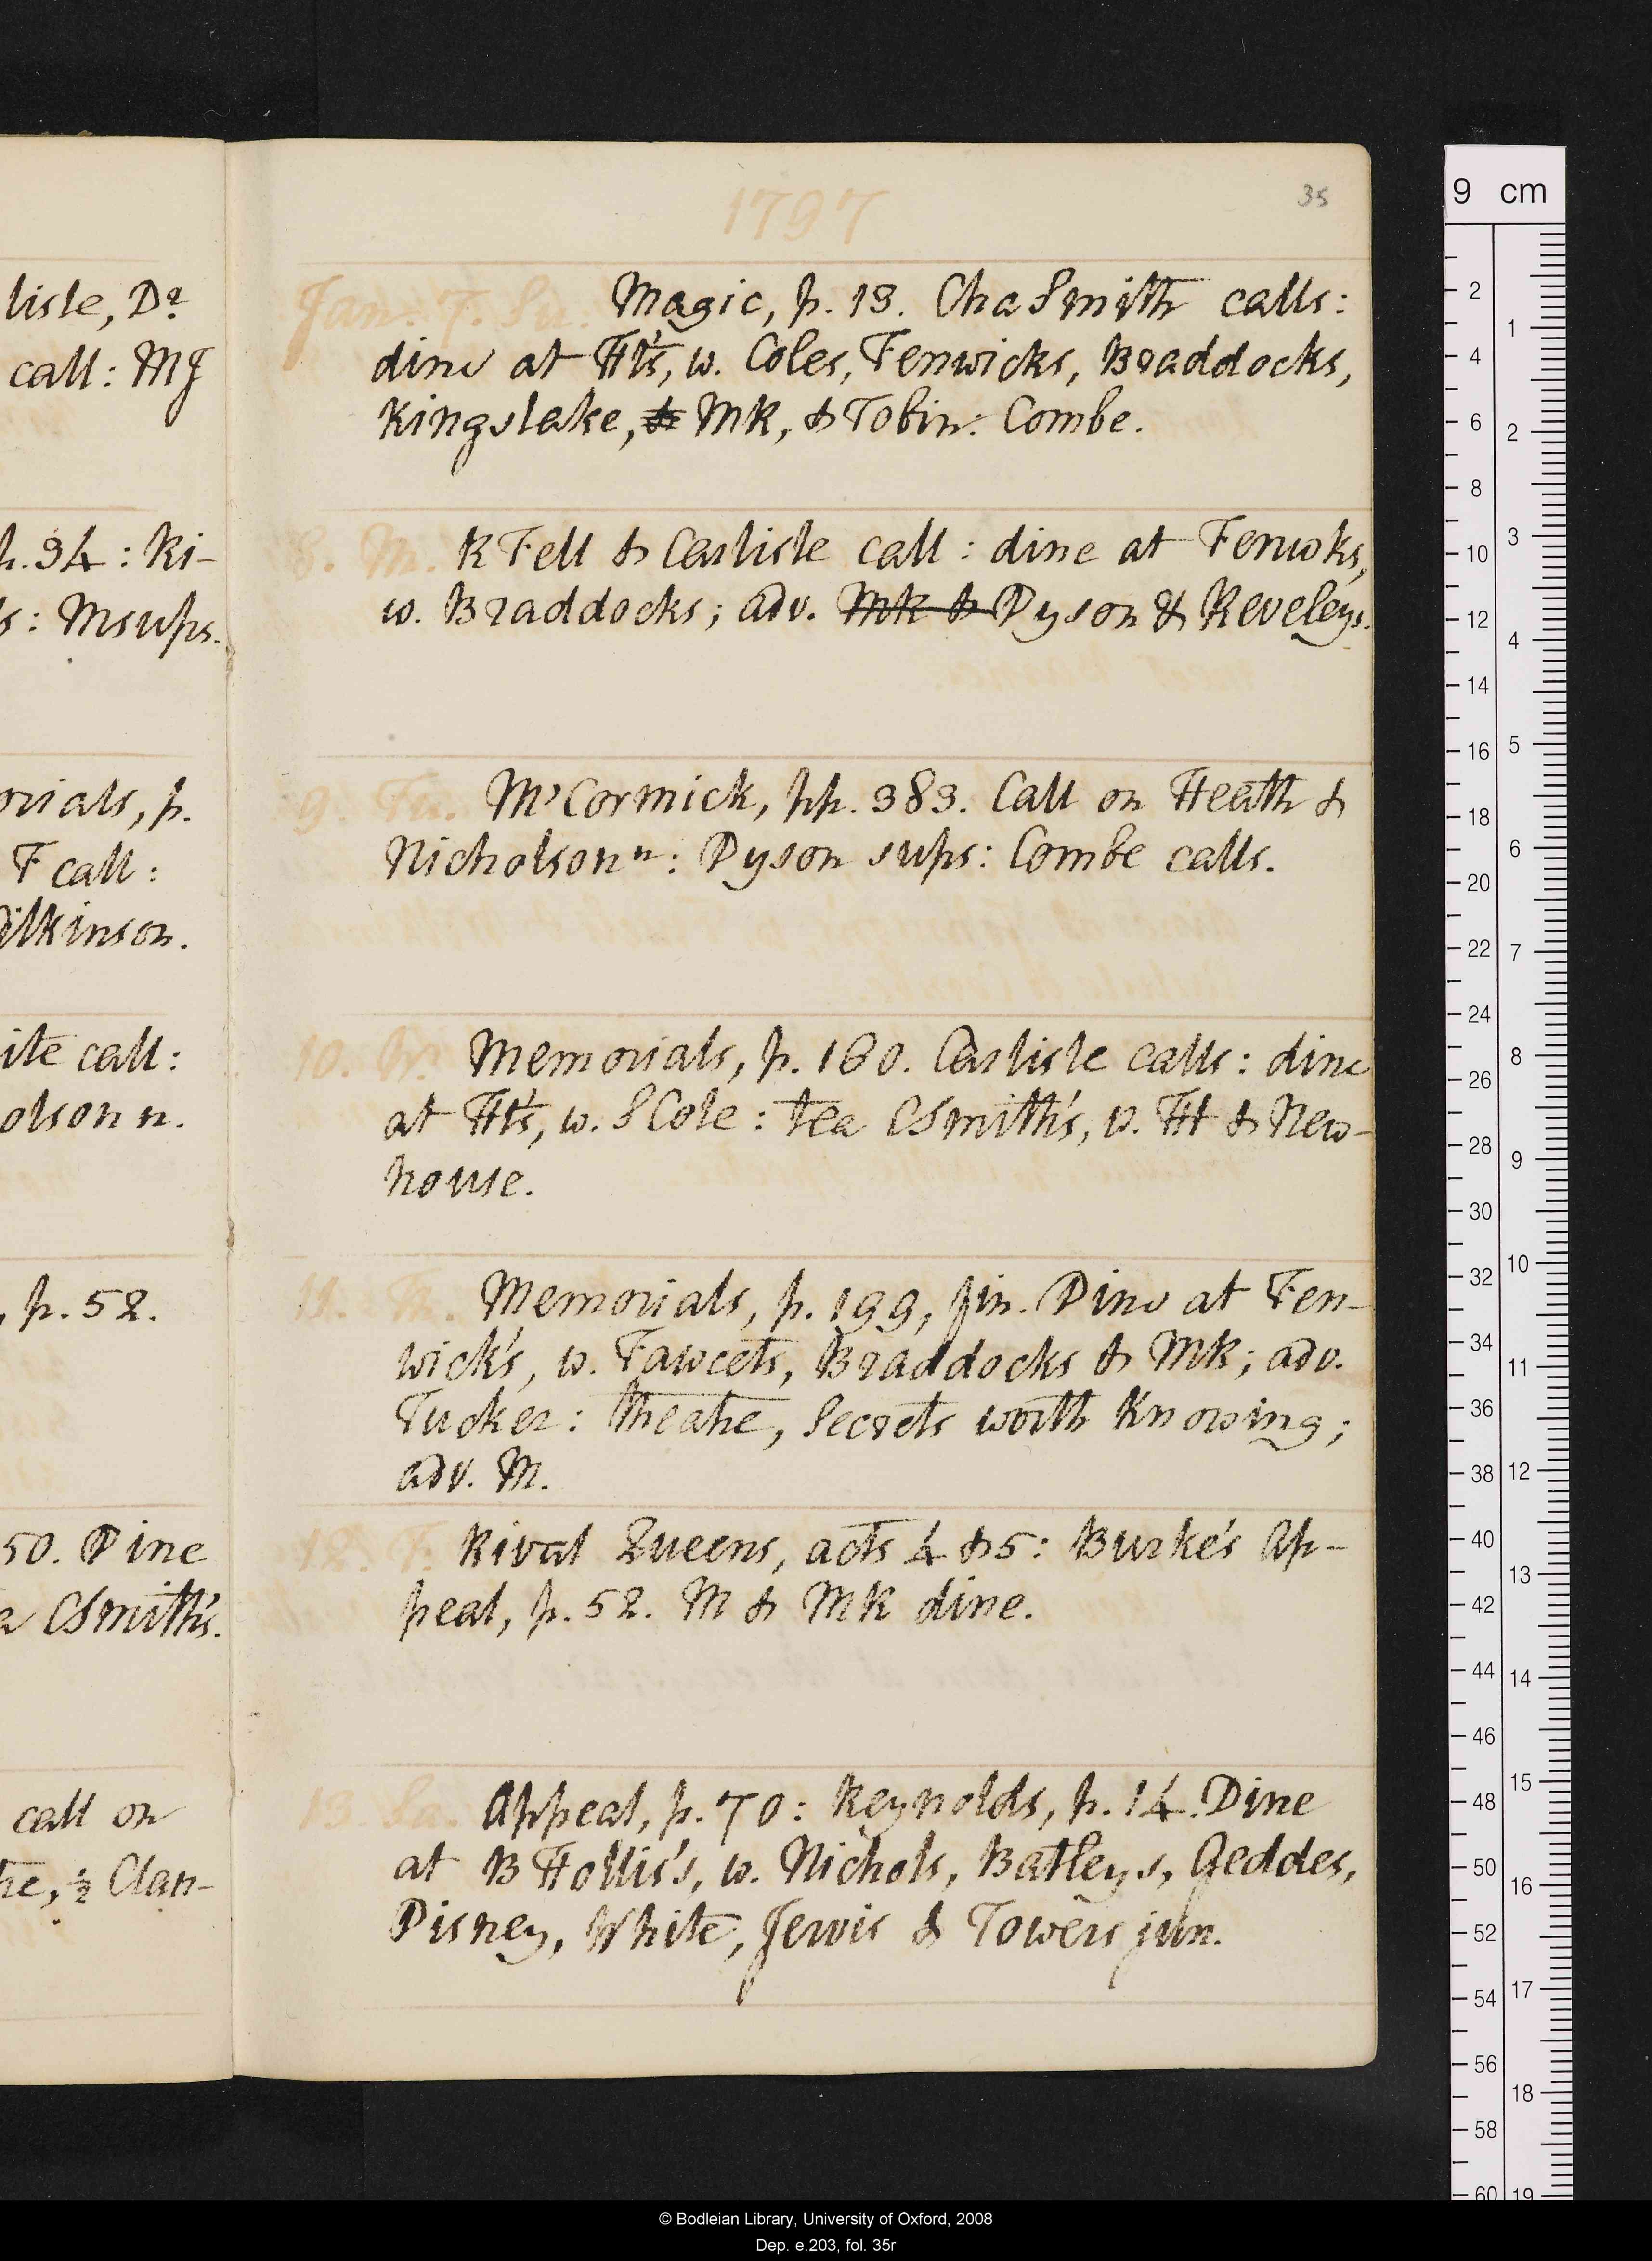 lisle, Dr
call: MJ
p. 34: Ri-
s: M sups.
orials, p.
F call:
ilkinson.
ite call:
olson n.
, p. 52.
50. Dine
a CSmith's.
call on
re, ½ Clan-
1797
35
Jan. 7. Su. Magic, p. 13. Cha Smith calls:
dine at Ht's, w. Coles, Fenwicks, Braddocks,
Kingslake, & MR, & Tobin: Combe.
8. M. R Fell & Carlisle call: dine at Fenwks,
w. Braddocks; adv. MR & Dyson & Reveleys.
9. Tu. M'Cormick, pp. 383. Call on Heath &
Nicholson n: Dyson sups: Combe calls.
10. W. Memorials, p. 180. Carlisle calls: dine
at Ht's, w. S Cole: tea CSmith's, w. Ht & New-
house.
11. Th. Memorials, p. 199, fin. Dine at Fen-
wick's, w. Fawcets, Braddocks & MR; adv.
Tucker: theatre, Secrets worth Knowing;
adv. M.
12. F. Rival Queens, acts 4 & 5: Burke's Ap-
peal, p. 52. M & MR dine.
13. Sa. Appeal, p. 70: Reynolds, p. 14. Dine
at B Hollis's, w. Nichols, Batleys, Geddes,
Disney, White, Jervis & Towers jun.
9 cm
2
4
6
8
10
12
14
16
18
20
22
24
26
28
30
32
34
36
38
40
42
44
46
48
50
52
54
56
58
60
1
2
3
4
5
6
7
8
9
10
11
12
13
14
15
16
17
18
19
© Bodleian Library, University of Oxford, 2008
Dep. e.203, fol. 35r